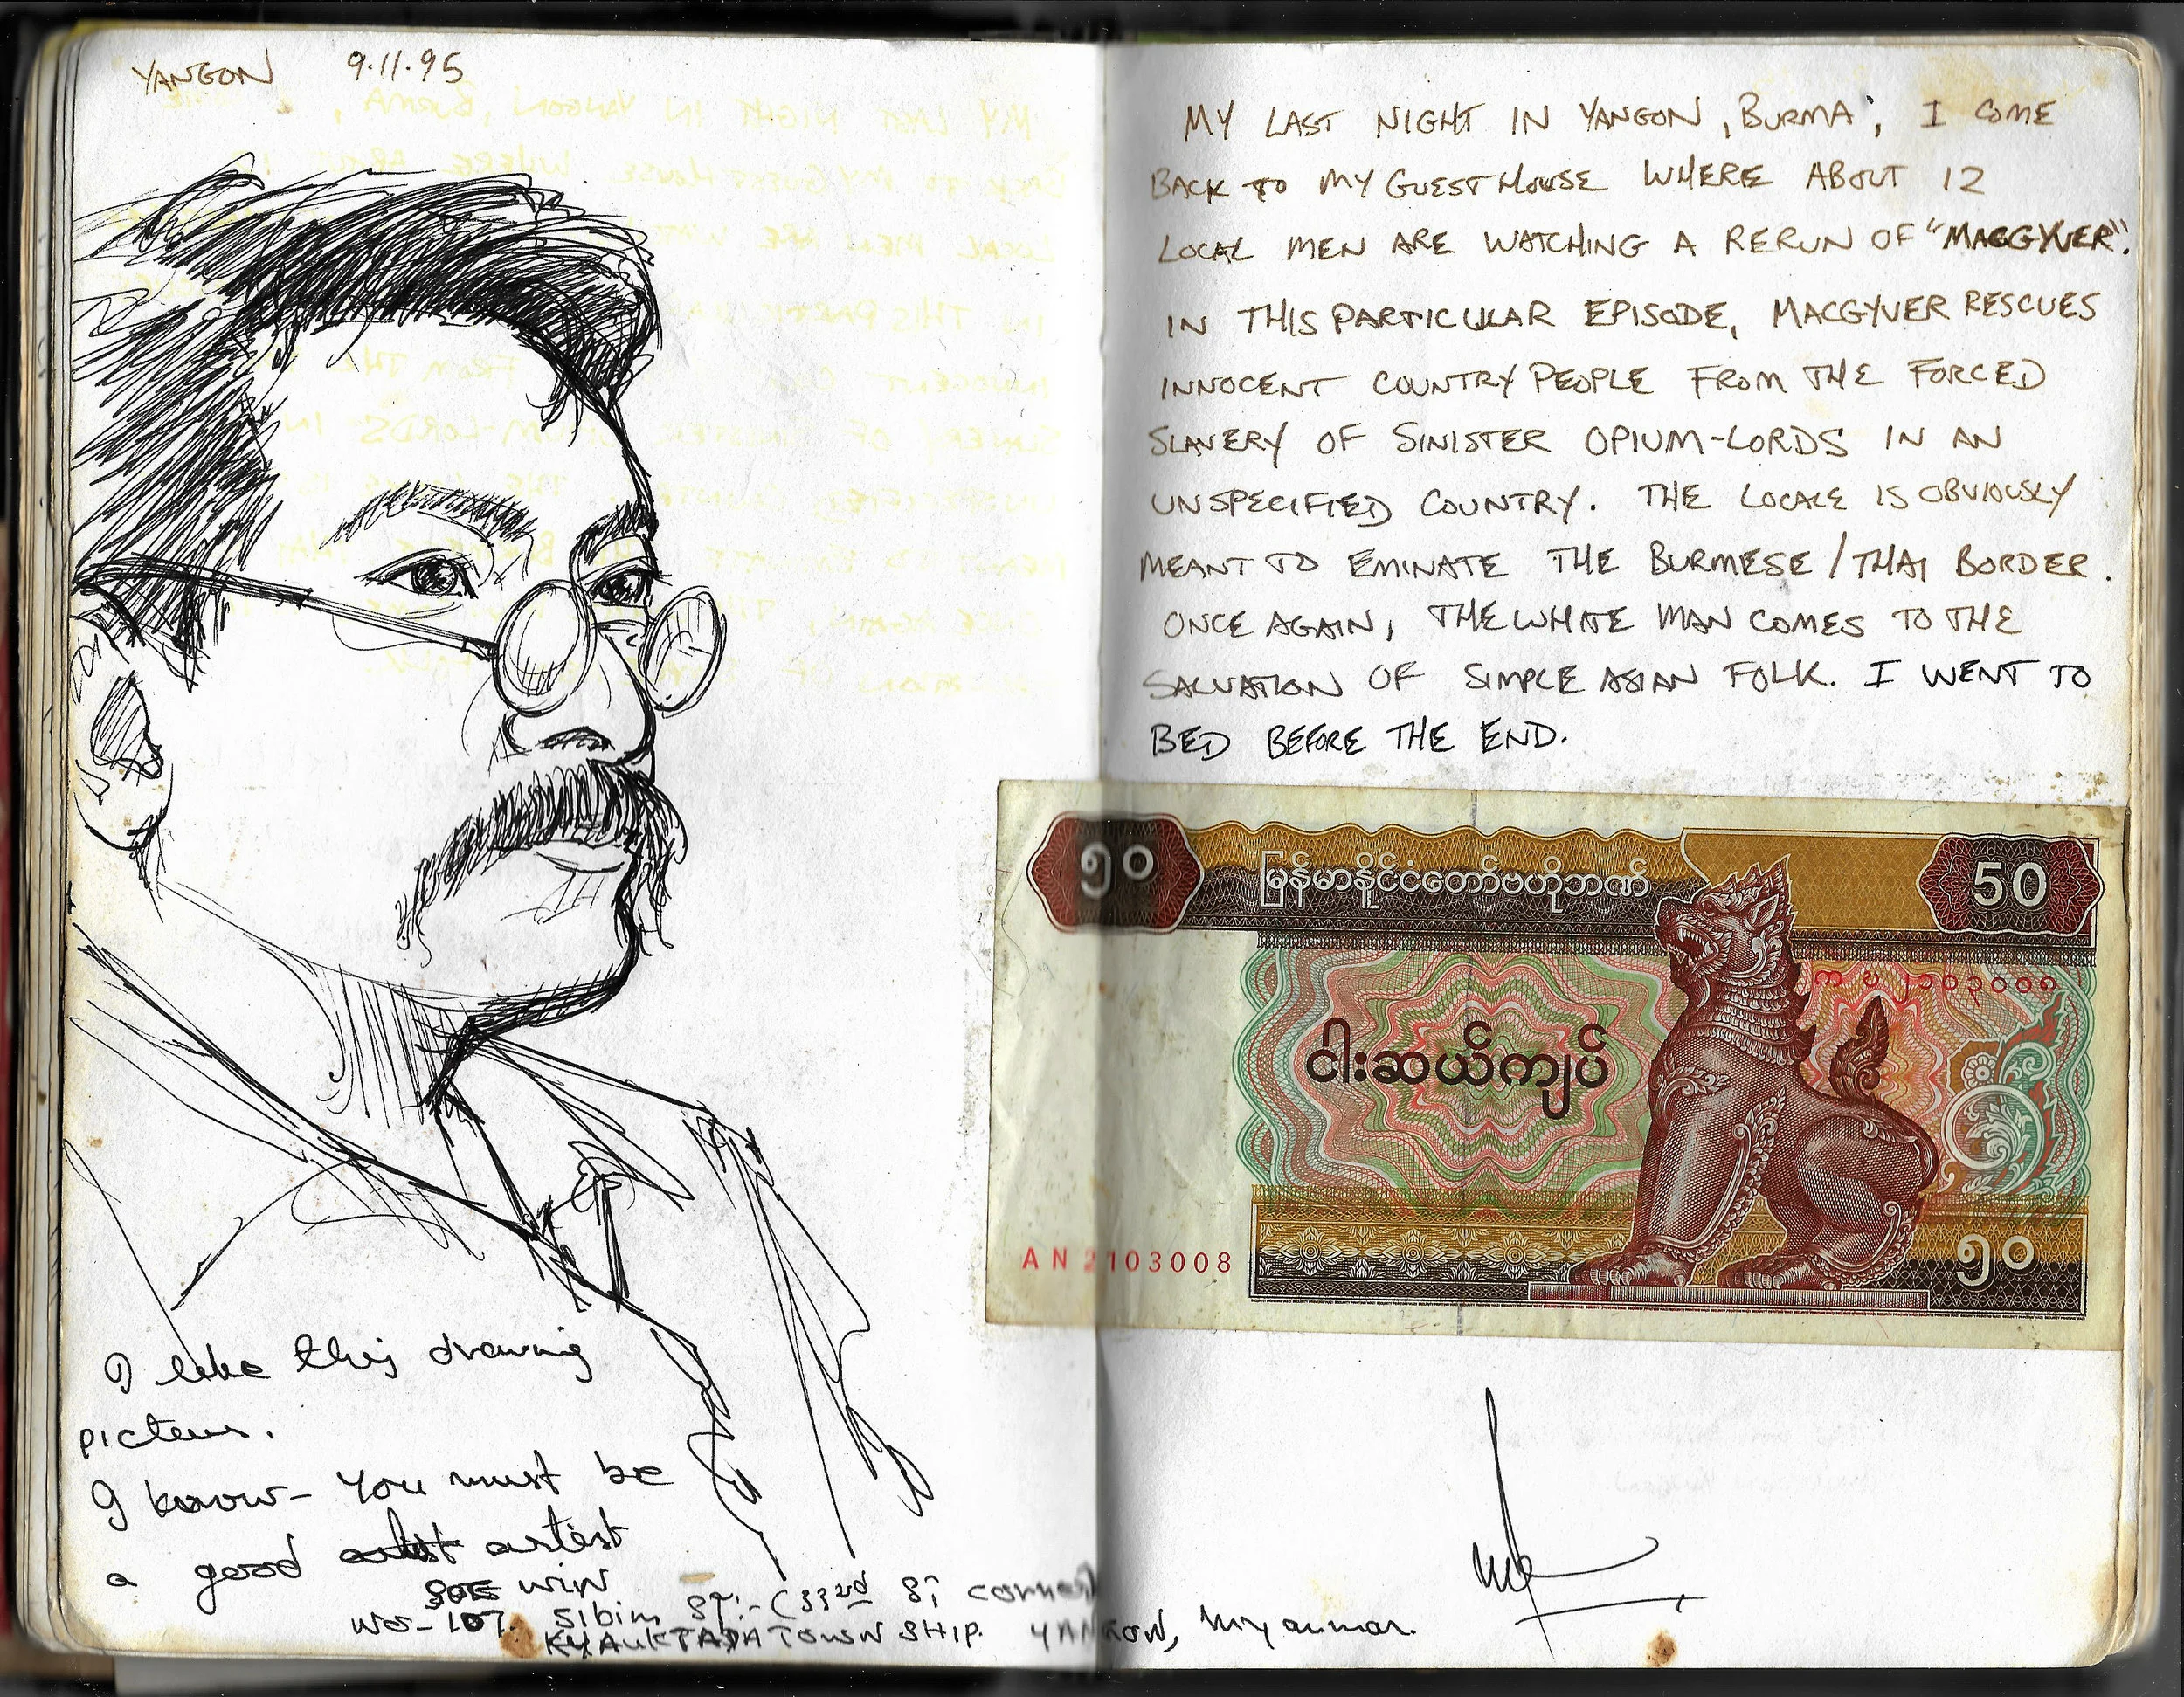 YANGON 9.11.95
I like this drawing
picteur.
I know- You must be
a good artist artist
SOE WIN
NO-107. Sibim st:-(33rd st corner
KYAUKTADA TOWN SHIP. YANGON, Myanmar.
MY LAST NIGHT IN YANGON, BURMA; I COME
BACK TO MY GUESTHOUSE WHERE ABOUT 12
LOCAL MEN ARE WATCHING A RERUN OF "MACGYVER".
IN THIS PARTICULAR EPISODE, MACGYVER RESCUES
INNOCENT COUNTRY PEOPLE FROM THE FORCED
SLAVERY OF SINISTER OPIUM-LORDS IN AN
UNSPECIFIED COUNTRY. THE LOCALE IS OBVIOUSLY
MEANT TO EMINATE THE BURMESE/THAI BORDER.
ONCE AGAIN, THE WHITE MAN COMES TO THE
SALVATION OF SIMPLE ASIAN FOLK. I WENT TO
BED BEFORE THE END.
၅၀ မြန်မာနိုင်ငံတော်ဗဟိုဘဏ် 50
၂၁၀၃၀၀၈
ငါးဆယ်ကျပ်
AN 2103008
၅၀